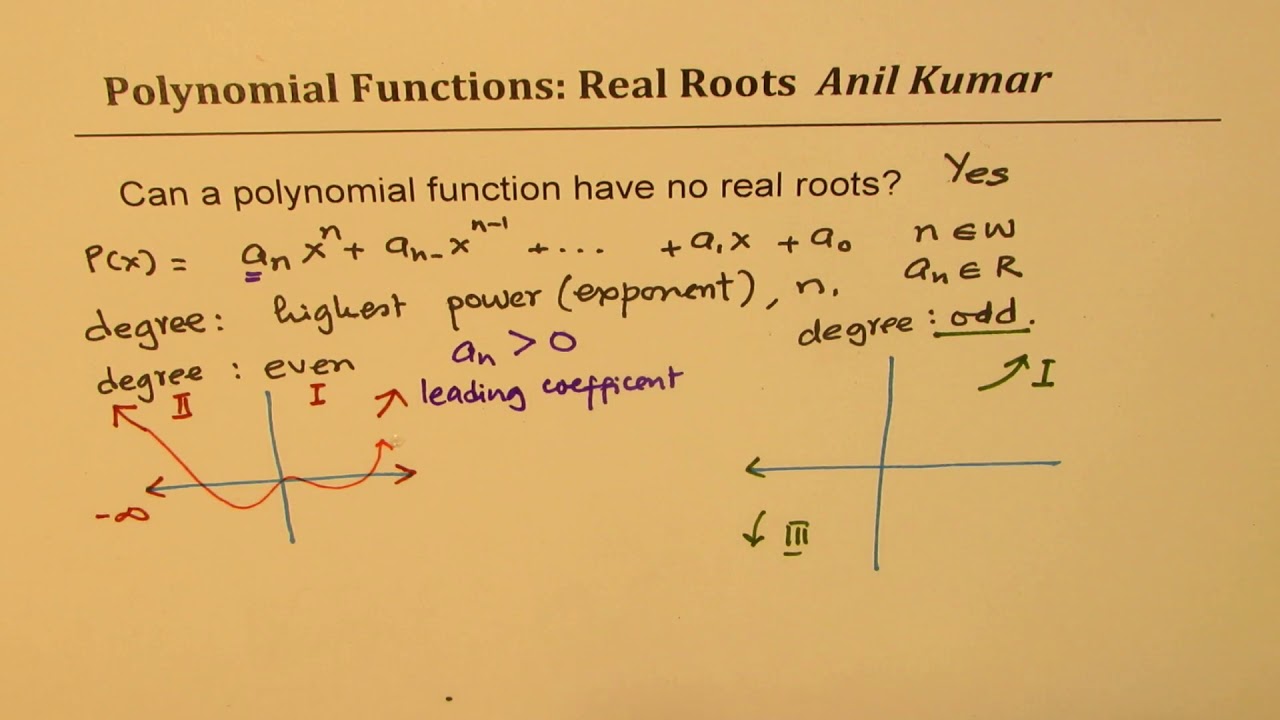 Polynomial Functions: Real Roots Anil Kumar
Can a polynomial function have no real roots? Yes
P(x) = aₙ xⁿ + aₙ₋ xⁿ⁻¹ + ... + a₁x + a₀ n ∈ W
aₙ ∈ R
degree: highest power (exponent), n.
degree : even aₙ > 0 degree : odd.
leading coefficent
II I I
-∞
III